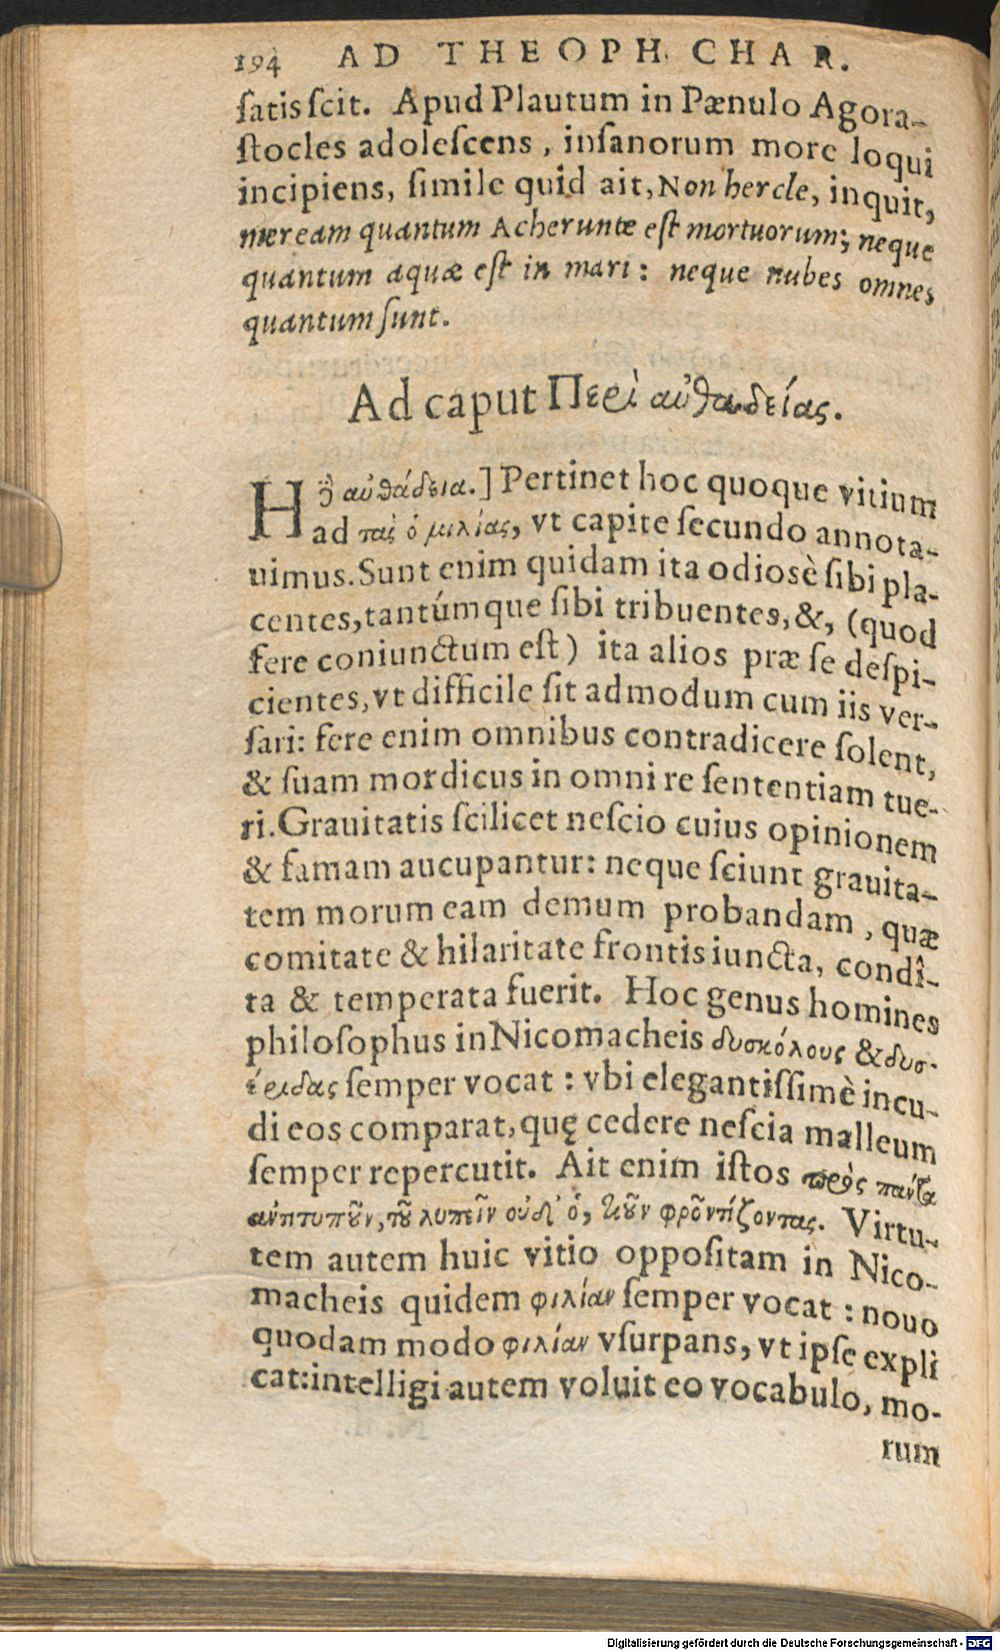 194 AD THEOPH. CHAR.
satis scit. Apud Plautum in Pænulo Agora-
stocles adolescens, insanorum more loqui
incipiens, simile quid ait, Non hercle, inquit,
meream quantum Acherunte est mortuorum; neque
quantum aquæ est in mari: neque nubes omnes
quantum sunt.
Ad caput Περὶ αὐθαδείας.
Η ἢ αὐθάδεια.] Pertinet hoc quoque vitium
ad τὰς ὁμιλίας, vt capite secundo annota-
uimus. Sunt enim quidam ita odiosè sibi pla-
centes, tantúmque sibi tribuentes, &, (quod
fere coniunctum est) ita alios præ se despi-
cientes, vt difficile sit admodum cum iis ver-
sari: fere enim omnibus contradicere solent,
& suam mordicus in omni re sententiam tue-
ri. Grauitatis scilicet nescio cuius opinionem
& famam aucupantur: neque sciunt grauita-
tem morum eam demum probandam, quæ
comitate & hilaritate frontis iuncta, condî-
ta & temperata fuerit. Hoc genus homines
philosophus in Nicomacheis δυσκόλους & δυσ-
έριδας semper vocat: vbi elegantissimè incu-
di eos comparat, quę cedere nescia malleum
semper repercutit. Ait enim istos πρὸς πάντα
ἀντιτυποῦν, τοῦ λυπεῖν οὐδ' ὁ, φροντίζοντας. Virtu-
tem autem huic vitio oppositam in Nico-
macheis quidem φιλίαν semper vocat: nouo
quodam modo φιλίαν vsurpans, vt ipse expli
cat: intelligi autem voluit eo vocabulo, mo-
rum
Digitalisierung gefördert durch die Deutsche Forschungsgemeinschaft - DFG